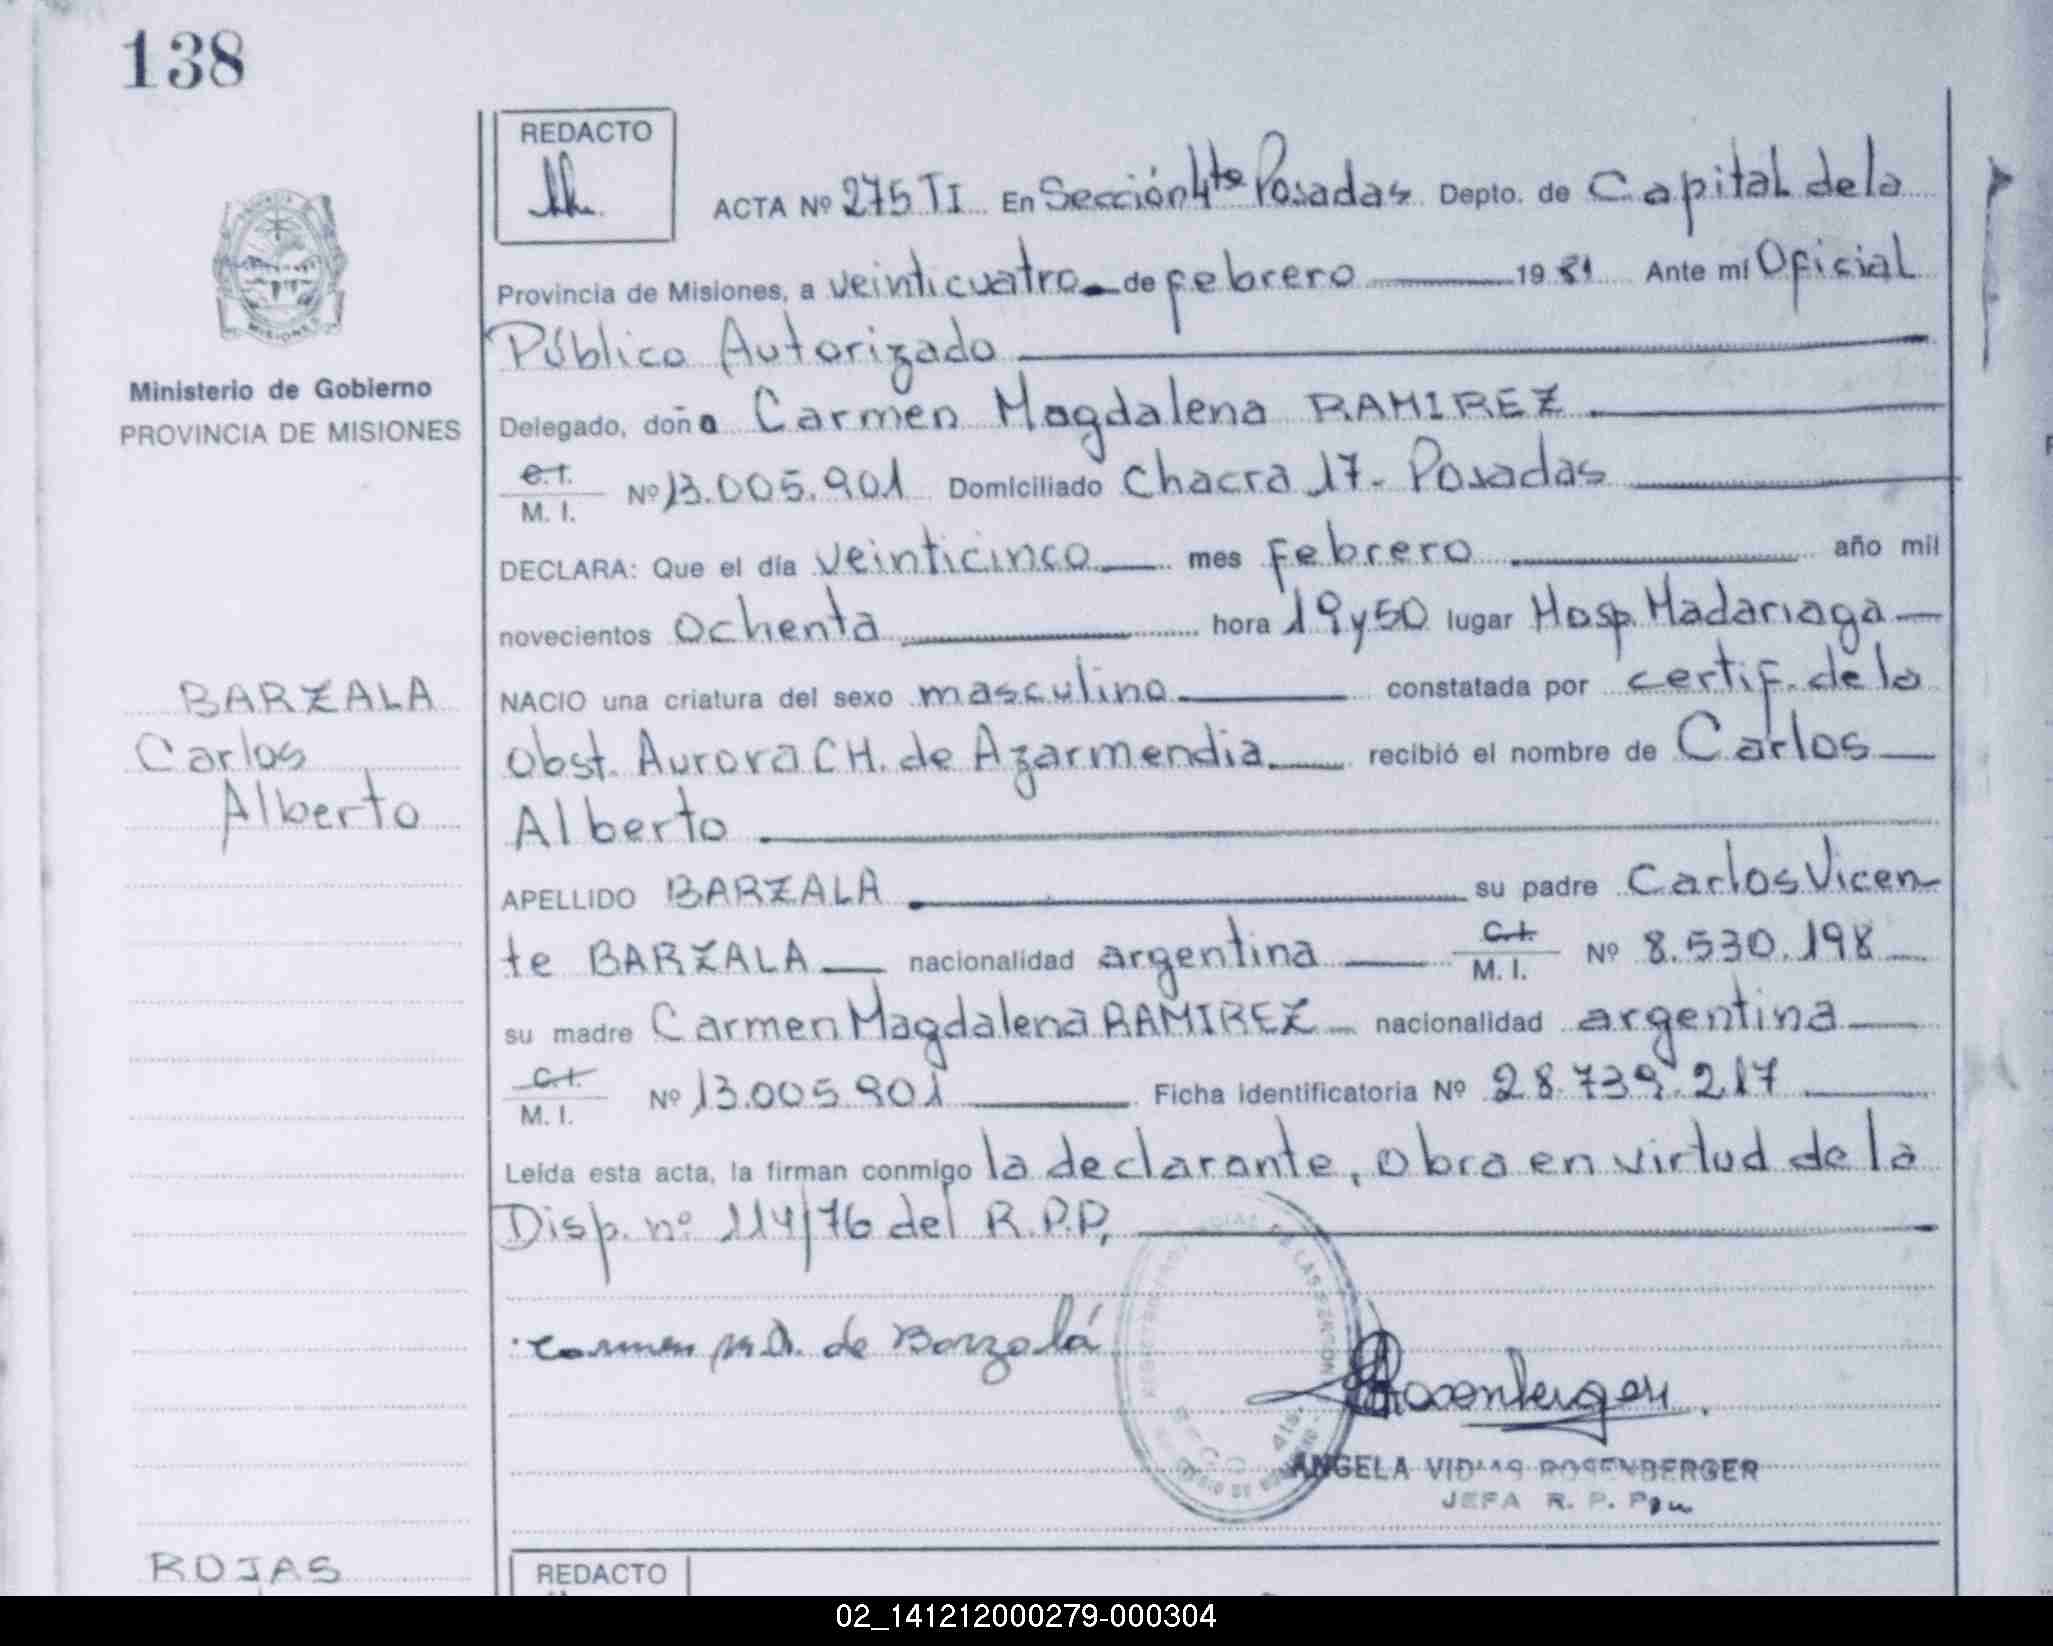 138
REDACTO
ACTA Nº 275 TI En Sección 4ta Posadas Depto. de Capital de la
Provincia de Misiones, a veinticuatro de febrero 1981 Ante mí Oficial
Público Autorizado
Ministerio de Gobierno
PROVINCIA DE MISIONES
Delegado, doña Carmen Magdalena RAMIREZ
C.I.
M. I. Nº 13.005.901 Domiciliado Chacra 17- Posadas
DECLARA: Que el día veinticinco mes febrero año mil
novecientos ochenta hora 19 y 50 lugar Hosp. Madariaga
BARZALA
Carlos
Alberto
NACIO una criatura del sexo masculino constatada por certif. de la
Obst. Aurora CH. de Azarmendia recibió el nombre de Carlos
Alberto
APELLIDO BARZALA su padre Carlos Vicen-
te BARZALA nacionalidad argentina C.I. M. I. Nº 8.530.198
su madre Carmen Magdalena RAMIREZ nacionalidad argentina
C.I.
M. I. Nº 13.005.901 Ficha identificatoria Nº 28.739.217
Leída esta acta, la firman conmigo la declarante, Obra en virtud de la
Disp. nº 114/76 del R.P.P,
Carmen M. R. de Barzalá
Rosenberger
ANGELA ROSENBERGER
JEFA R. P. P
ROJAS
REDACTO
02_141212000279-000304